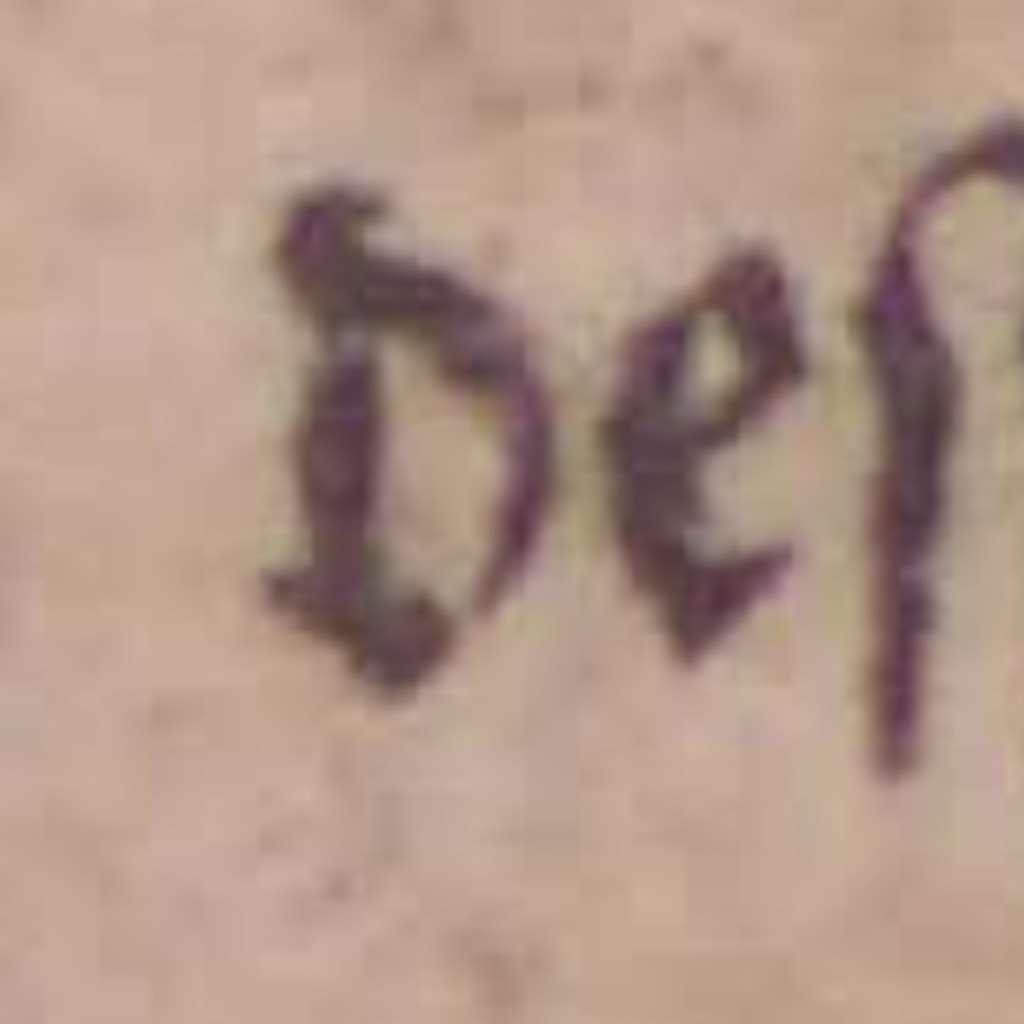 Deſ